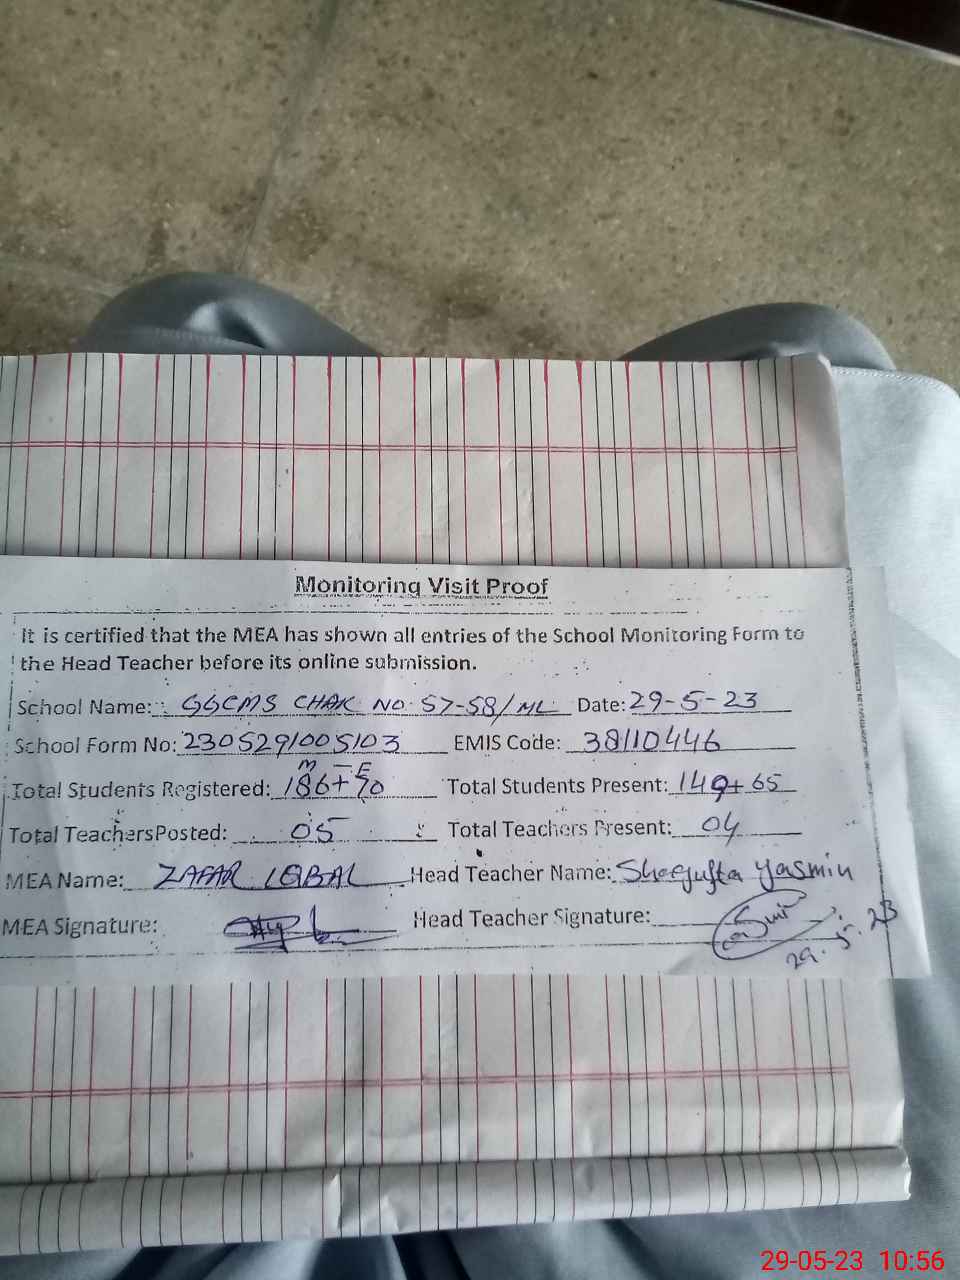 Monitoring Visit Proof
It is certified that the MEA has shown all entries of the School Monitoring Form to
the Head Teacher before its online submission.
School Name: GGCMS CHAK NO. 57-58/ML Date: 29-5-23
School Form No: 2305291005103 EMIS Code: 38110446
M - E
Total Students Registered: 186+70 Total Students Present: 149+65
Total Teachers Posted: 05 Total Teachers Present: 04
MEA Name: ZAFAR IQBAL Head Teacher Name: Shagufta Yasmin
MEA Signature: Head Teacher Signature:
29.5.23
29-05-23 10:56